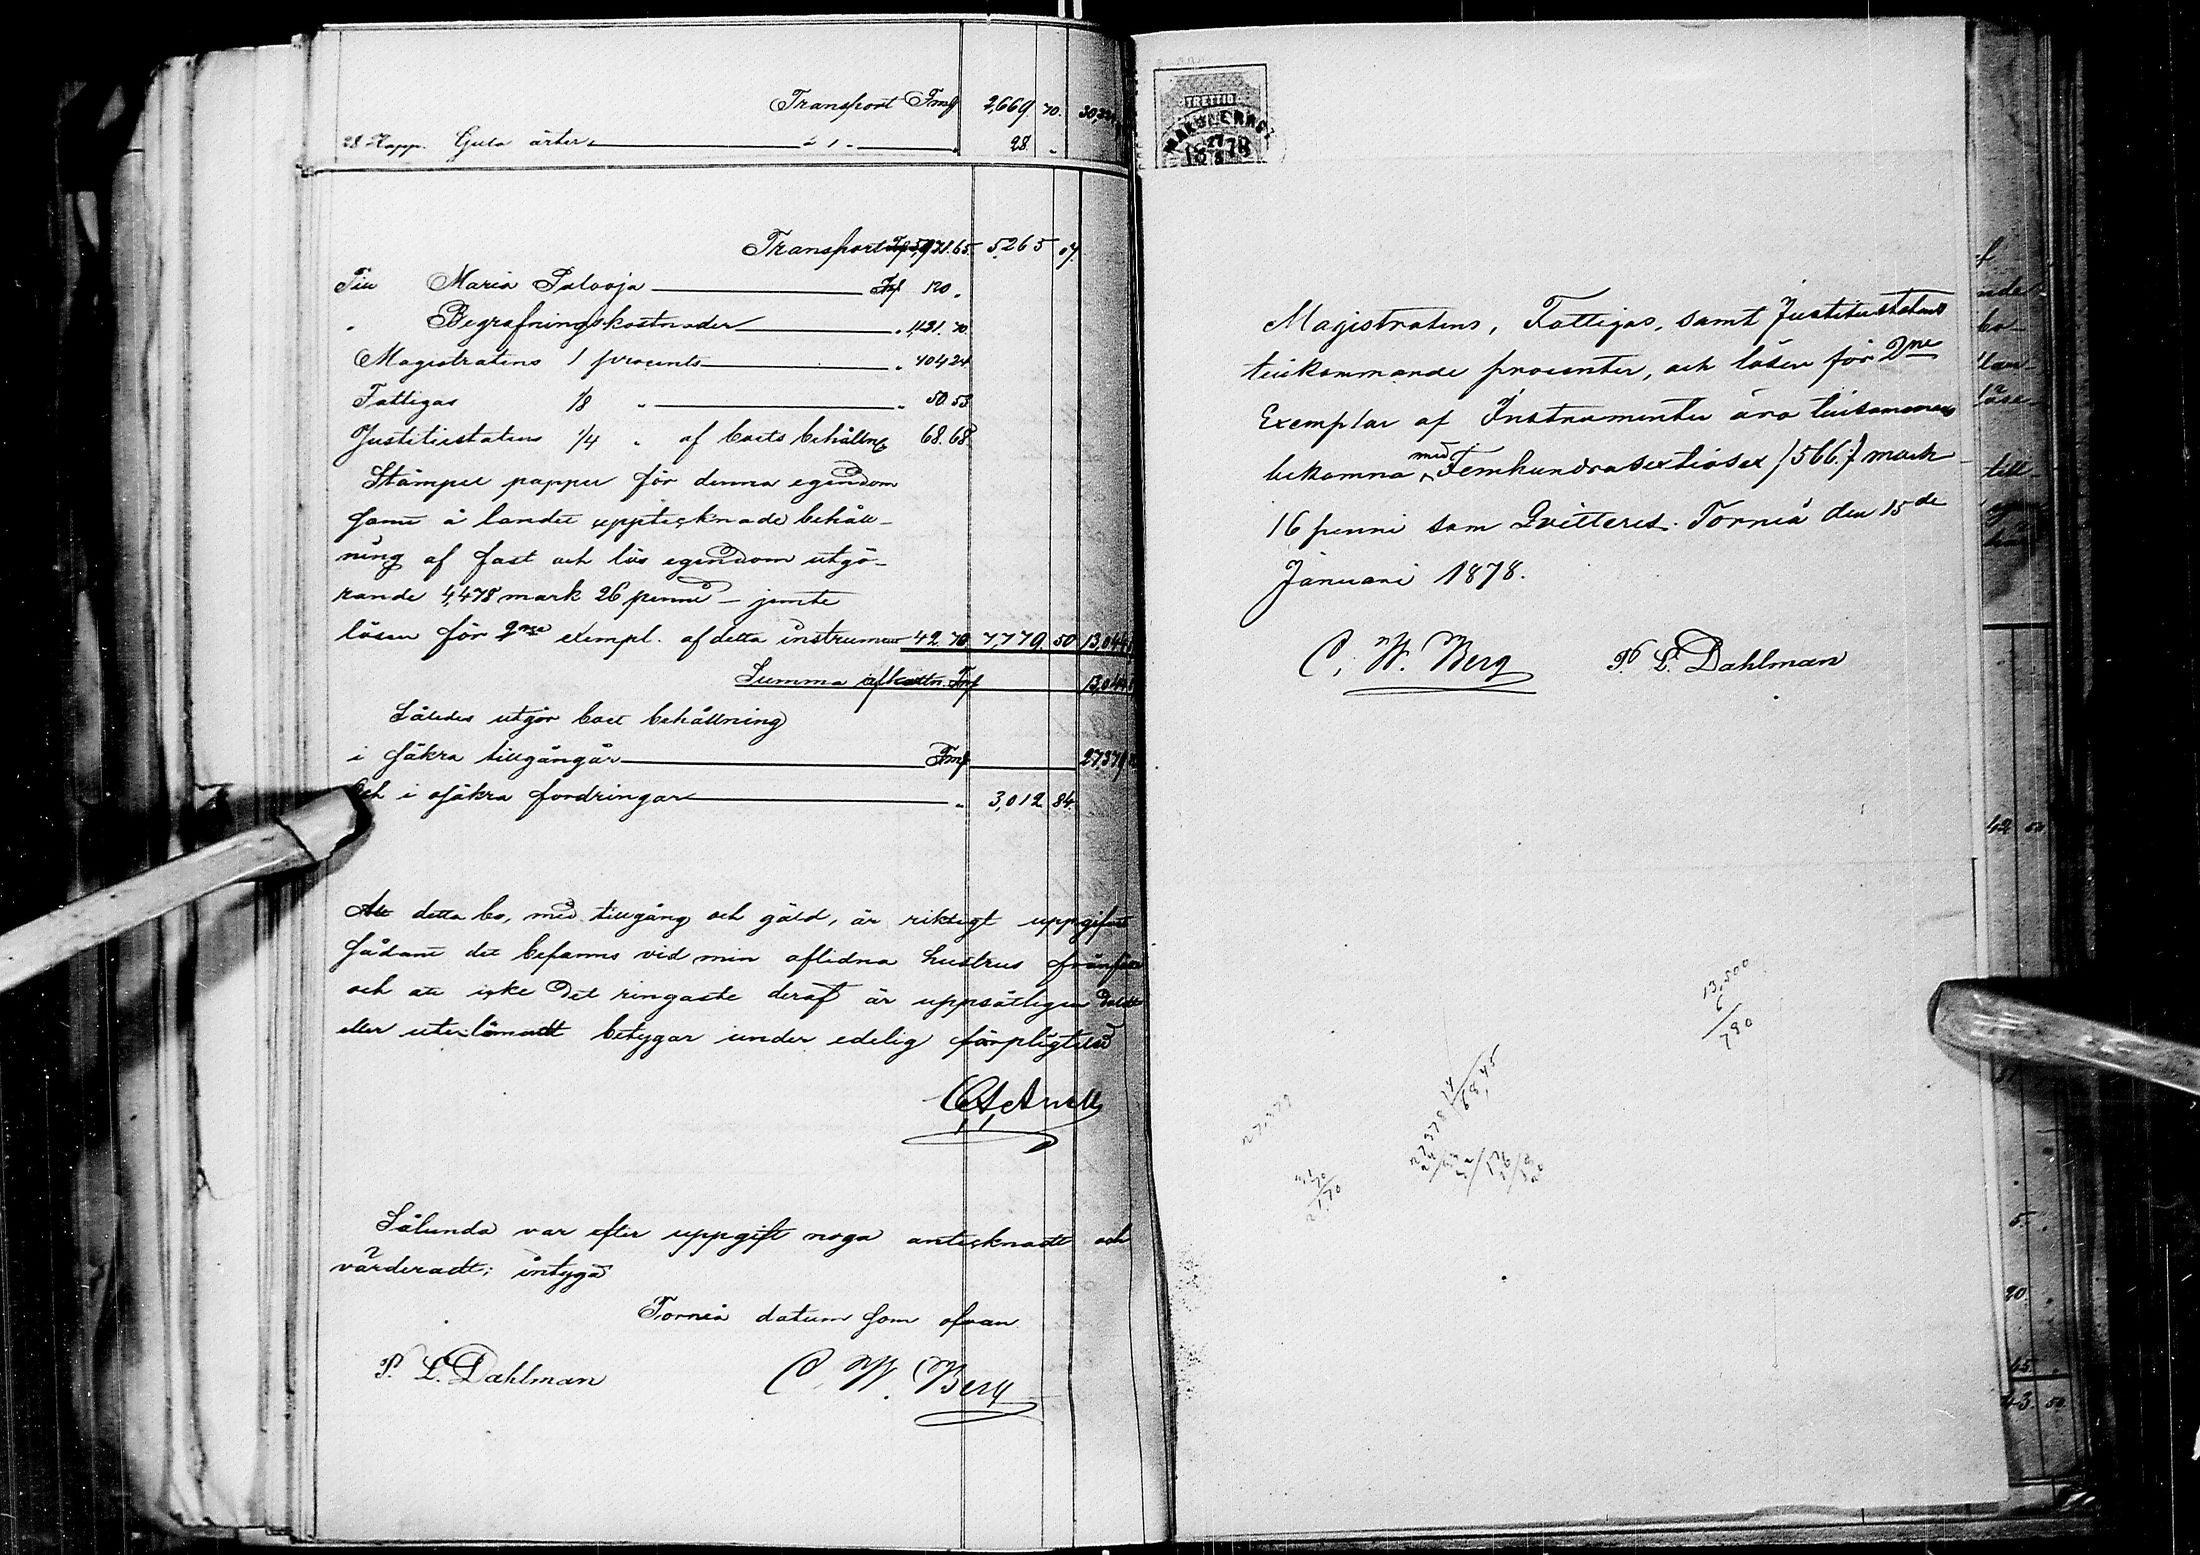 Transport Fmf 2,669 70.
28 Kapp. Gula ärter à 1 28 "
Transport 5,971.65 5,265 07.
Till Maria Palovja Fmf 120 "
" Begrafningskostnader " 1,121. 70
Magistratens 1 procents " 404 24
Fattigas 1/8 " " 50. 53
Justitiestatens 1/4 " af boets behålln. 68. 68.
Stämpel papper för denna egendom
samt å landet upptecknade behåll-
ning af fast och lös egendom utgö-
rande 4,478 mark 26 penni - jemte
lösen för 2ne exempl. af detta instrument 42. 70 7,779 50
Summa afkortn. Fmf
Således utgör boet behållning
i säkra tillgångar Fmf 27,379
Och i osäkra fordringar " 3,012 84.
Att detta bo, med tillgång och gäld, är riktigt uppgifvet
sådant det befanns vid min aflidna hustrus frånfälle
och att icke det ringaste deraf är uppsåtligen doldt
eller utelämnadt betygar under edelig förpligtelse
Sålunda var efter uppgift noga antecknadt och
värderadt; intyga
Torneå datum som ofvan
P. L. Dahlman C. W. Berg
TRETTIO
1878
Magistratens, Fattigas, samt Justitiestatens
tillkommande procenter, och lösen för 2ne
Exemplar af Instrumentet äro tillsammans
bekomna med Femhundrasextiosex /566./ mark
16 penni som Qvitteras. Torneå den 15de
Januari 1878.
C. W. Berg P. L. Dahlman
13,500
6
790
27,379